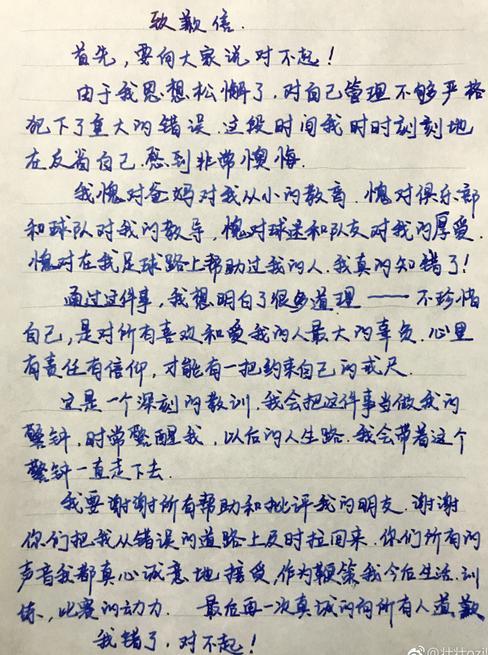 致歉信.
首先，要向大家说对不起！
由于我思想松懈了，对自己管理不够严格
犯下了重大的错误.这段时间我时时刻刻地
在反省自己.感到非常懊悔.
我愧对爸妈对我从小的教育.愧对俱乐部
和球队对我的教导，愧对球迷和队友对我的厚爱.
愧对在我足球路上帮助过我的人.我真的知错了！
通过这件事，我想明白了很多道理——不珍惜
自己，是对所有喜欢和爱我的人最大的辜负.心里
有责任有信仰，才能有一把约束自己的戒尺.
这是一个深刻的教训.我会把这件事当做我的
警钟，时常警醒我，以后的人生路.我会带着这个
警钟一直走下去.
我要谢谢所有帮助和批评我的朋友.谢谢
你们把我从错误的道路上及时拉回来.你们所有的
声音我都真心诚意地接受，作为鞭策我今后生活.训
练，比赛的动力. 最后再一次真诚的向所有人道歉
我错了，对不起！
@壮壮ozil